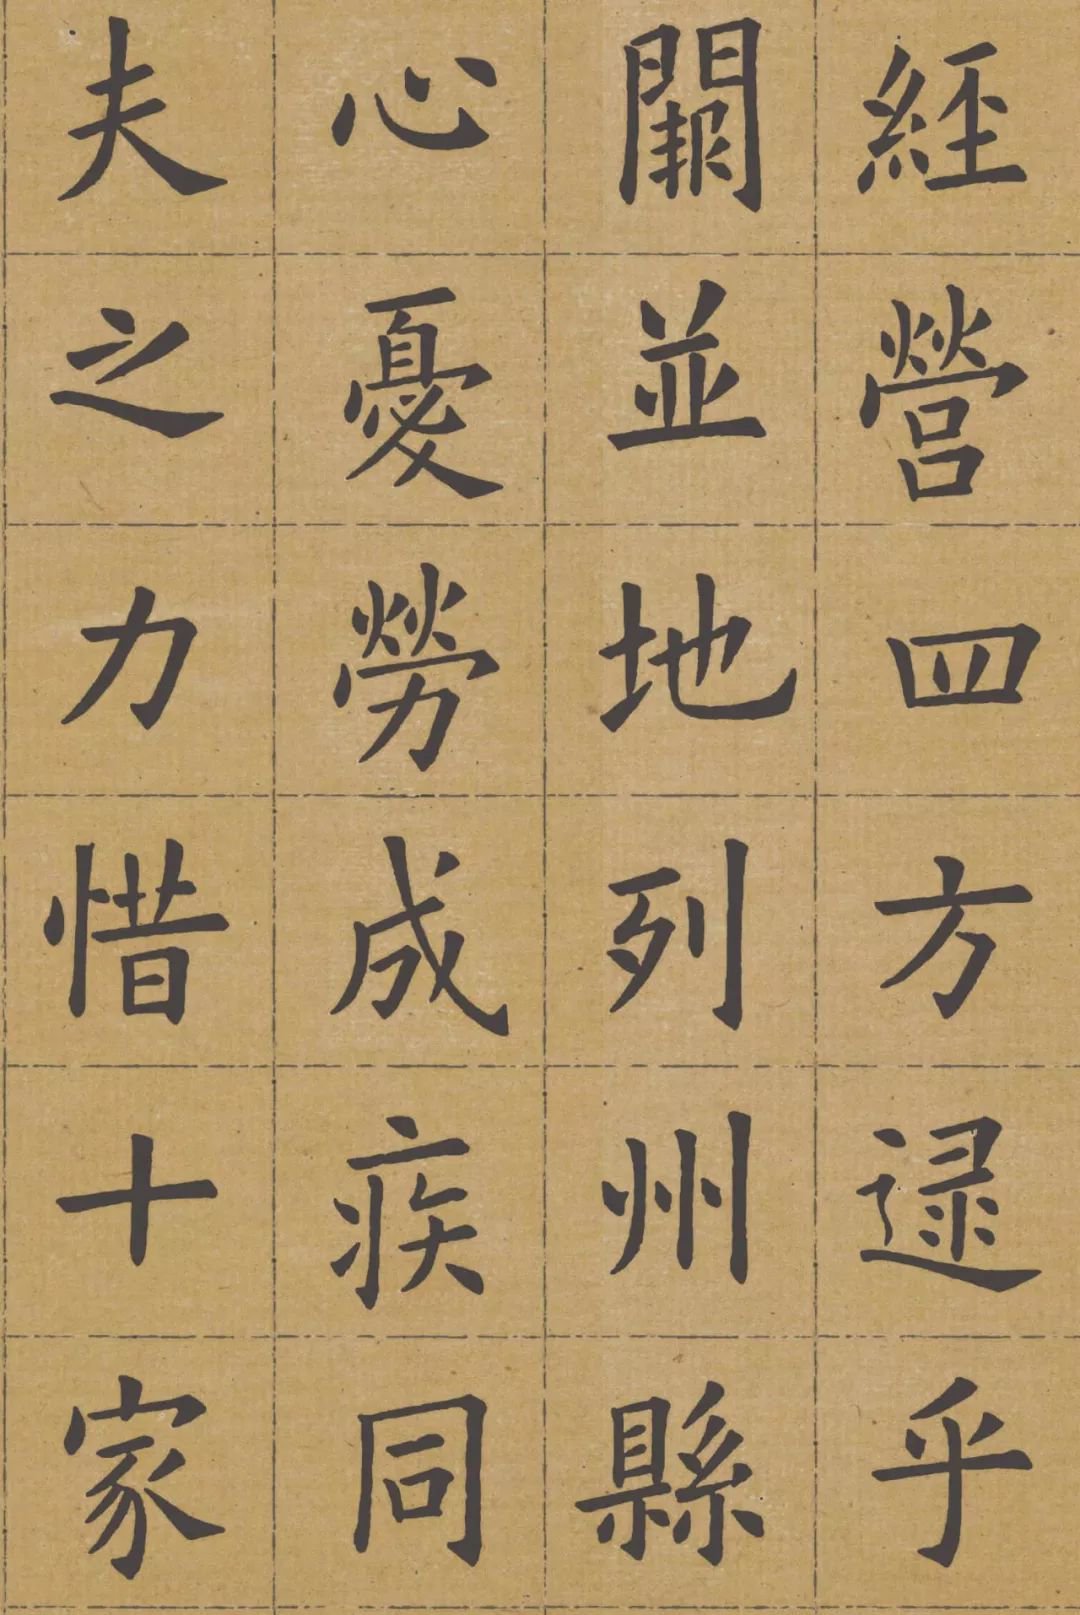 經營四方逯乎
闢並地列州縣
心憂勞成疾同
夫之力惜十家